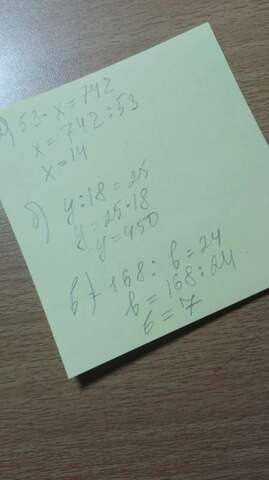 а) 53 · x = 742
x = 742 : 53
x = 14
б) y : 18 = 25
y = 25 · 18
y = 450
в) 168 : b = 24
b = 168 : 24
b = 7